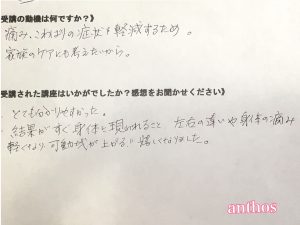 受講の動機は何ですか?》
痛み、こわばりの症状を軽減するため。
家族のケアにも考えたいから。
受講された講座はいかがでしたか?感想をお聞かせください》
・とても分かりやすかった。
・結果がすぐ身体に現われること、左右の違いや身体の痛み
軽くなり可動域が上がる嬉しくなりました。
anthos